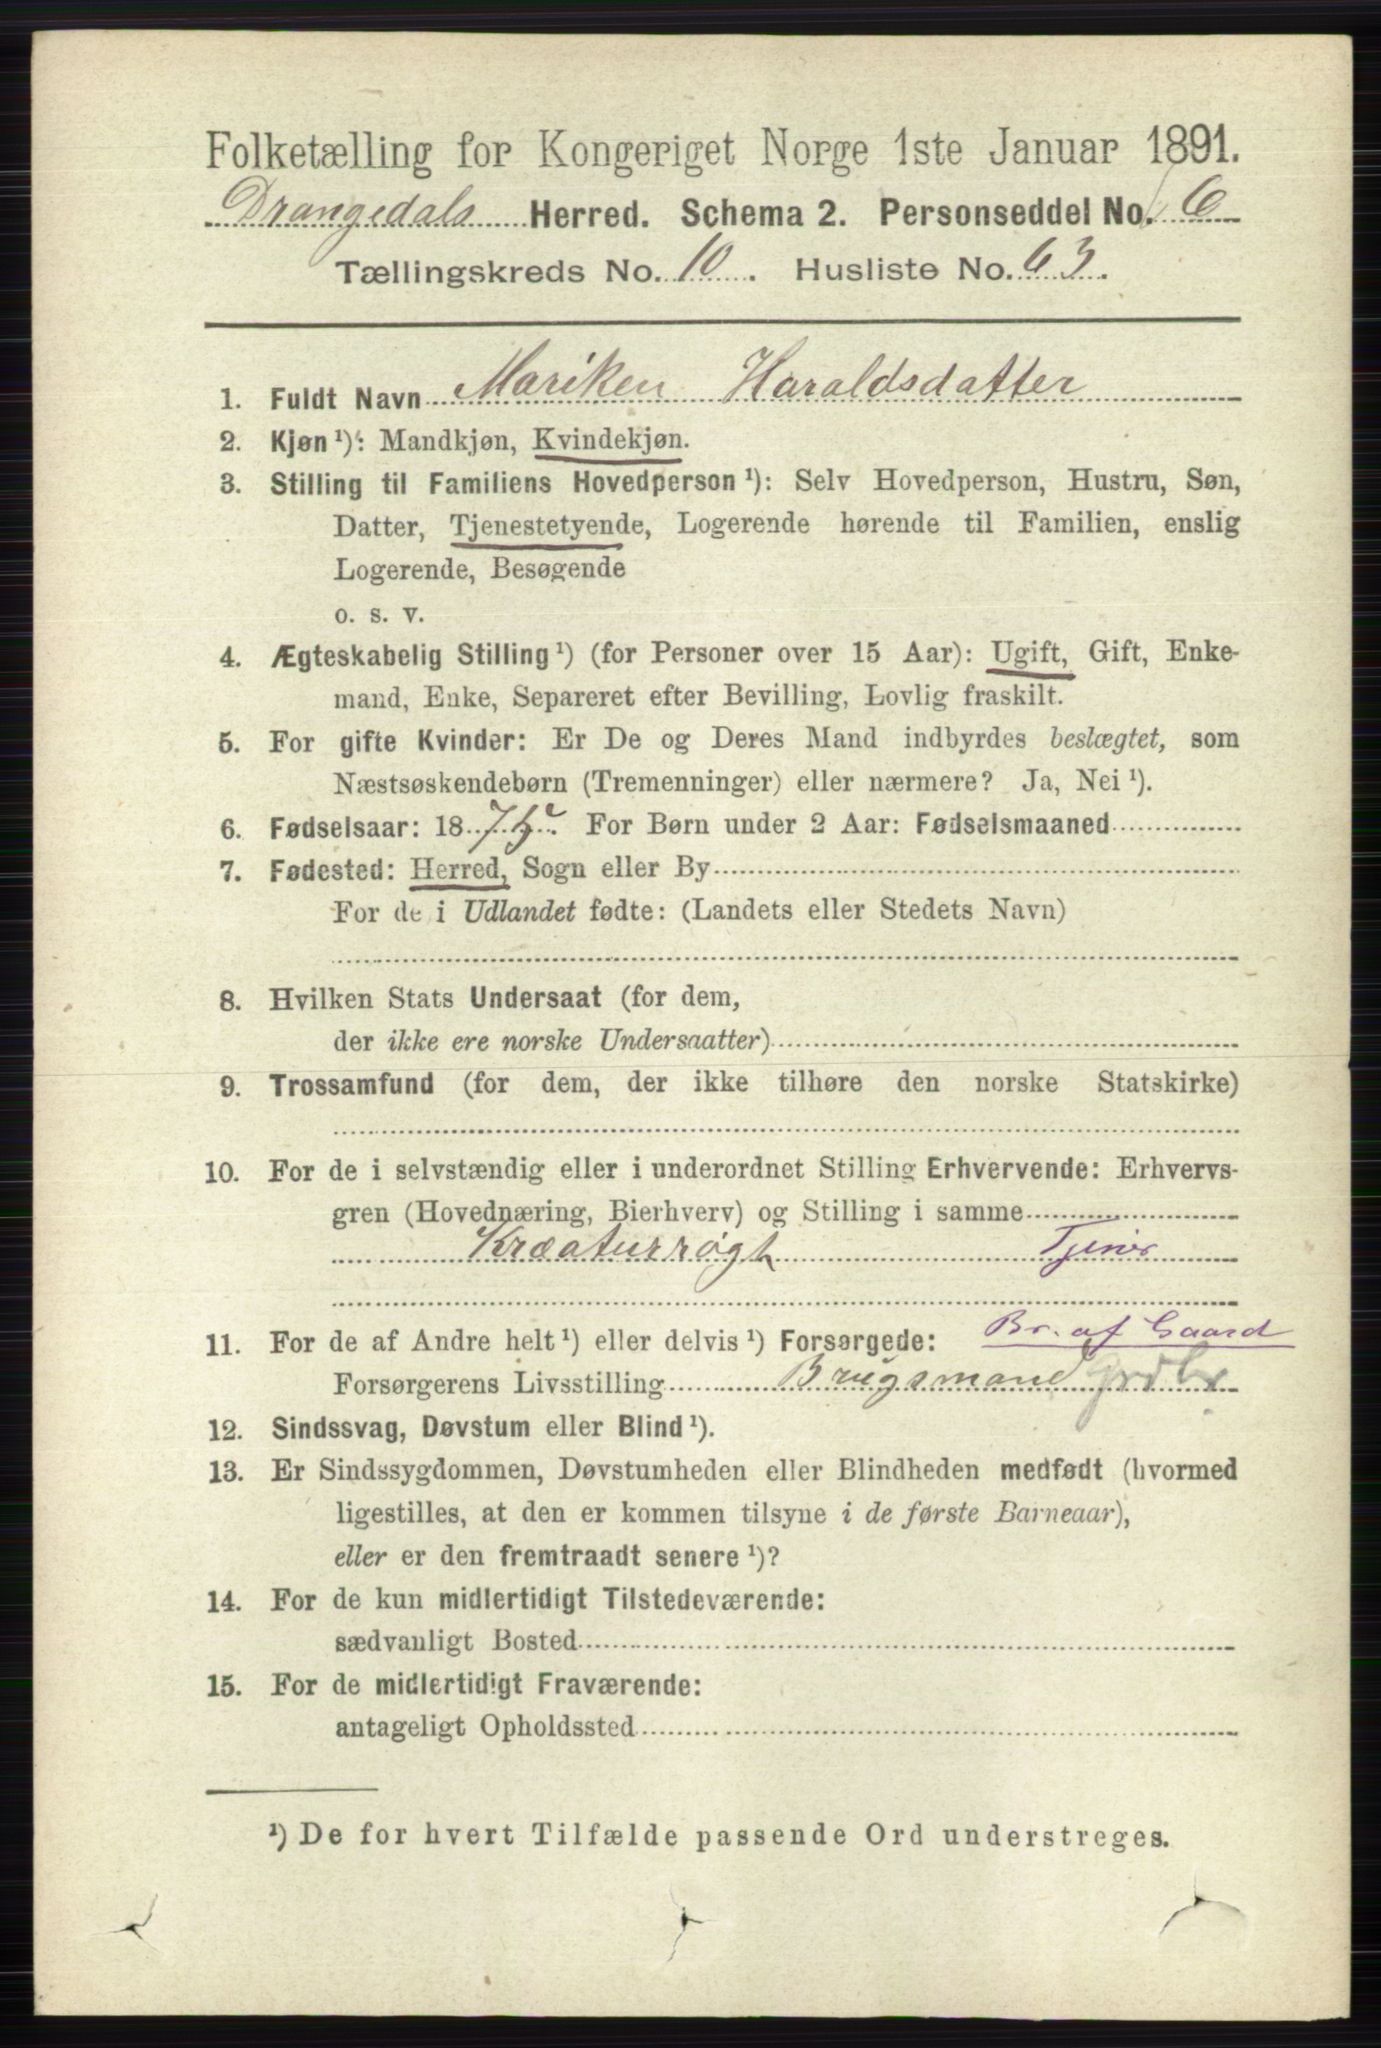 Folketælling for Kongeriget Norge 1ste Januar 1891.
Drangedals Herred. Schema 2. Personseddel No. 6
Tællingskreds No. 10. Husliste No. 63.
1. Fuldt Navn Mariken Haraldsdatter
2. Kjøn ¹): Mandkjøn, Kvindekjøn.
3. Stilling til Familiens Hovedperson ¹): Selv Hovedperson, Hustru, Søn,
Datter, Tjenestetyende, Logerende hørende til Familien, enslig
Logerende, Besøgende
o. s. v.
4. Ægteskabelig Stilling ¹) (for Personer over 15 Aar): Ugift, Gift, Enke-
mand, Enke, Separeret efter Bevilling, Lovlig fraskilt.
5. For gifte Kvinder: Er De og Deres Mand indbyrdes beslægtet, som
Næstsøskendebørn (Tremenninger) eller nærmere? Ja, Nei ¹).
6. Fødselsaar: 1875. For Børn under 2 Aar: Fødselsmaaned
7. Fødested: Herred, Sogn eller By
For de i Udlandet fødte: (Landets eller Stedets Navn)
8. Hvilken Stats Undersaat (for dem,
der ikke ere norske Undersaatter)
9. Trossamfund (for dem, der ikke tilhøre den norske Statskirke)
10. For de i selvstændig eller i underordnet Stilling Erhvervende: Erhvervs-
gren (Hovednæring, Bierhverv) og Stilling i samme
Kræaturrøgt Tjener
Br. af Gaard
11. For de af Andre helt ¹) eller delvis ¹) Forsørgede:
Forsørgerens Livsstilling Brugsmand
12. Sindssvag, Døvstum eller Blind ¹).
13. Er Sindssygdommen, Døvstumheden eller Blindheden medfødt (hvormed
ligestilles, at den er kommen tilsyne i de første Barneaar),
eller er den fremtraadt senere ¹)?
14. For de kun midlertidigt Tilstedeværende:
sædvanligt Bosted
15. For de midlertidigt Fraværende:
antageligt Opholdssted
¹) De for hvert Tilfælde passende Ord understreges.